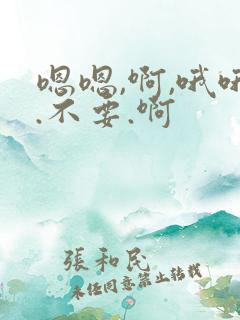 嗯嗯,啊,哦哦
.不要.啊
張和民
未经同意禁止转载